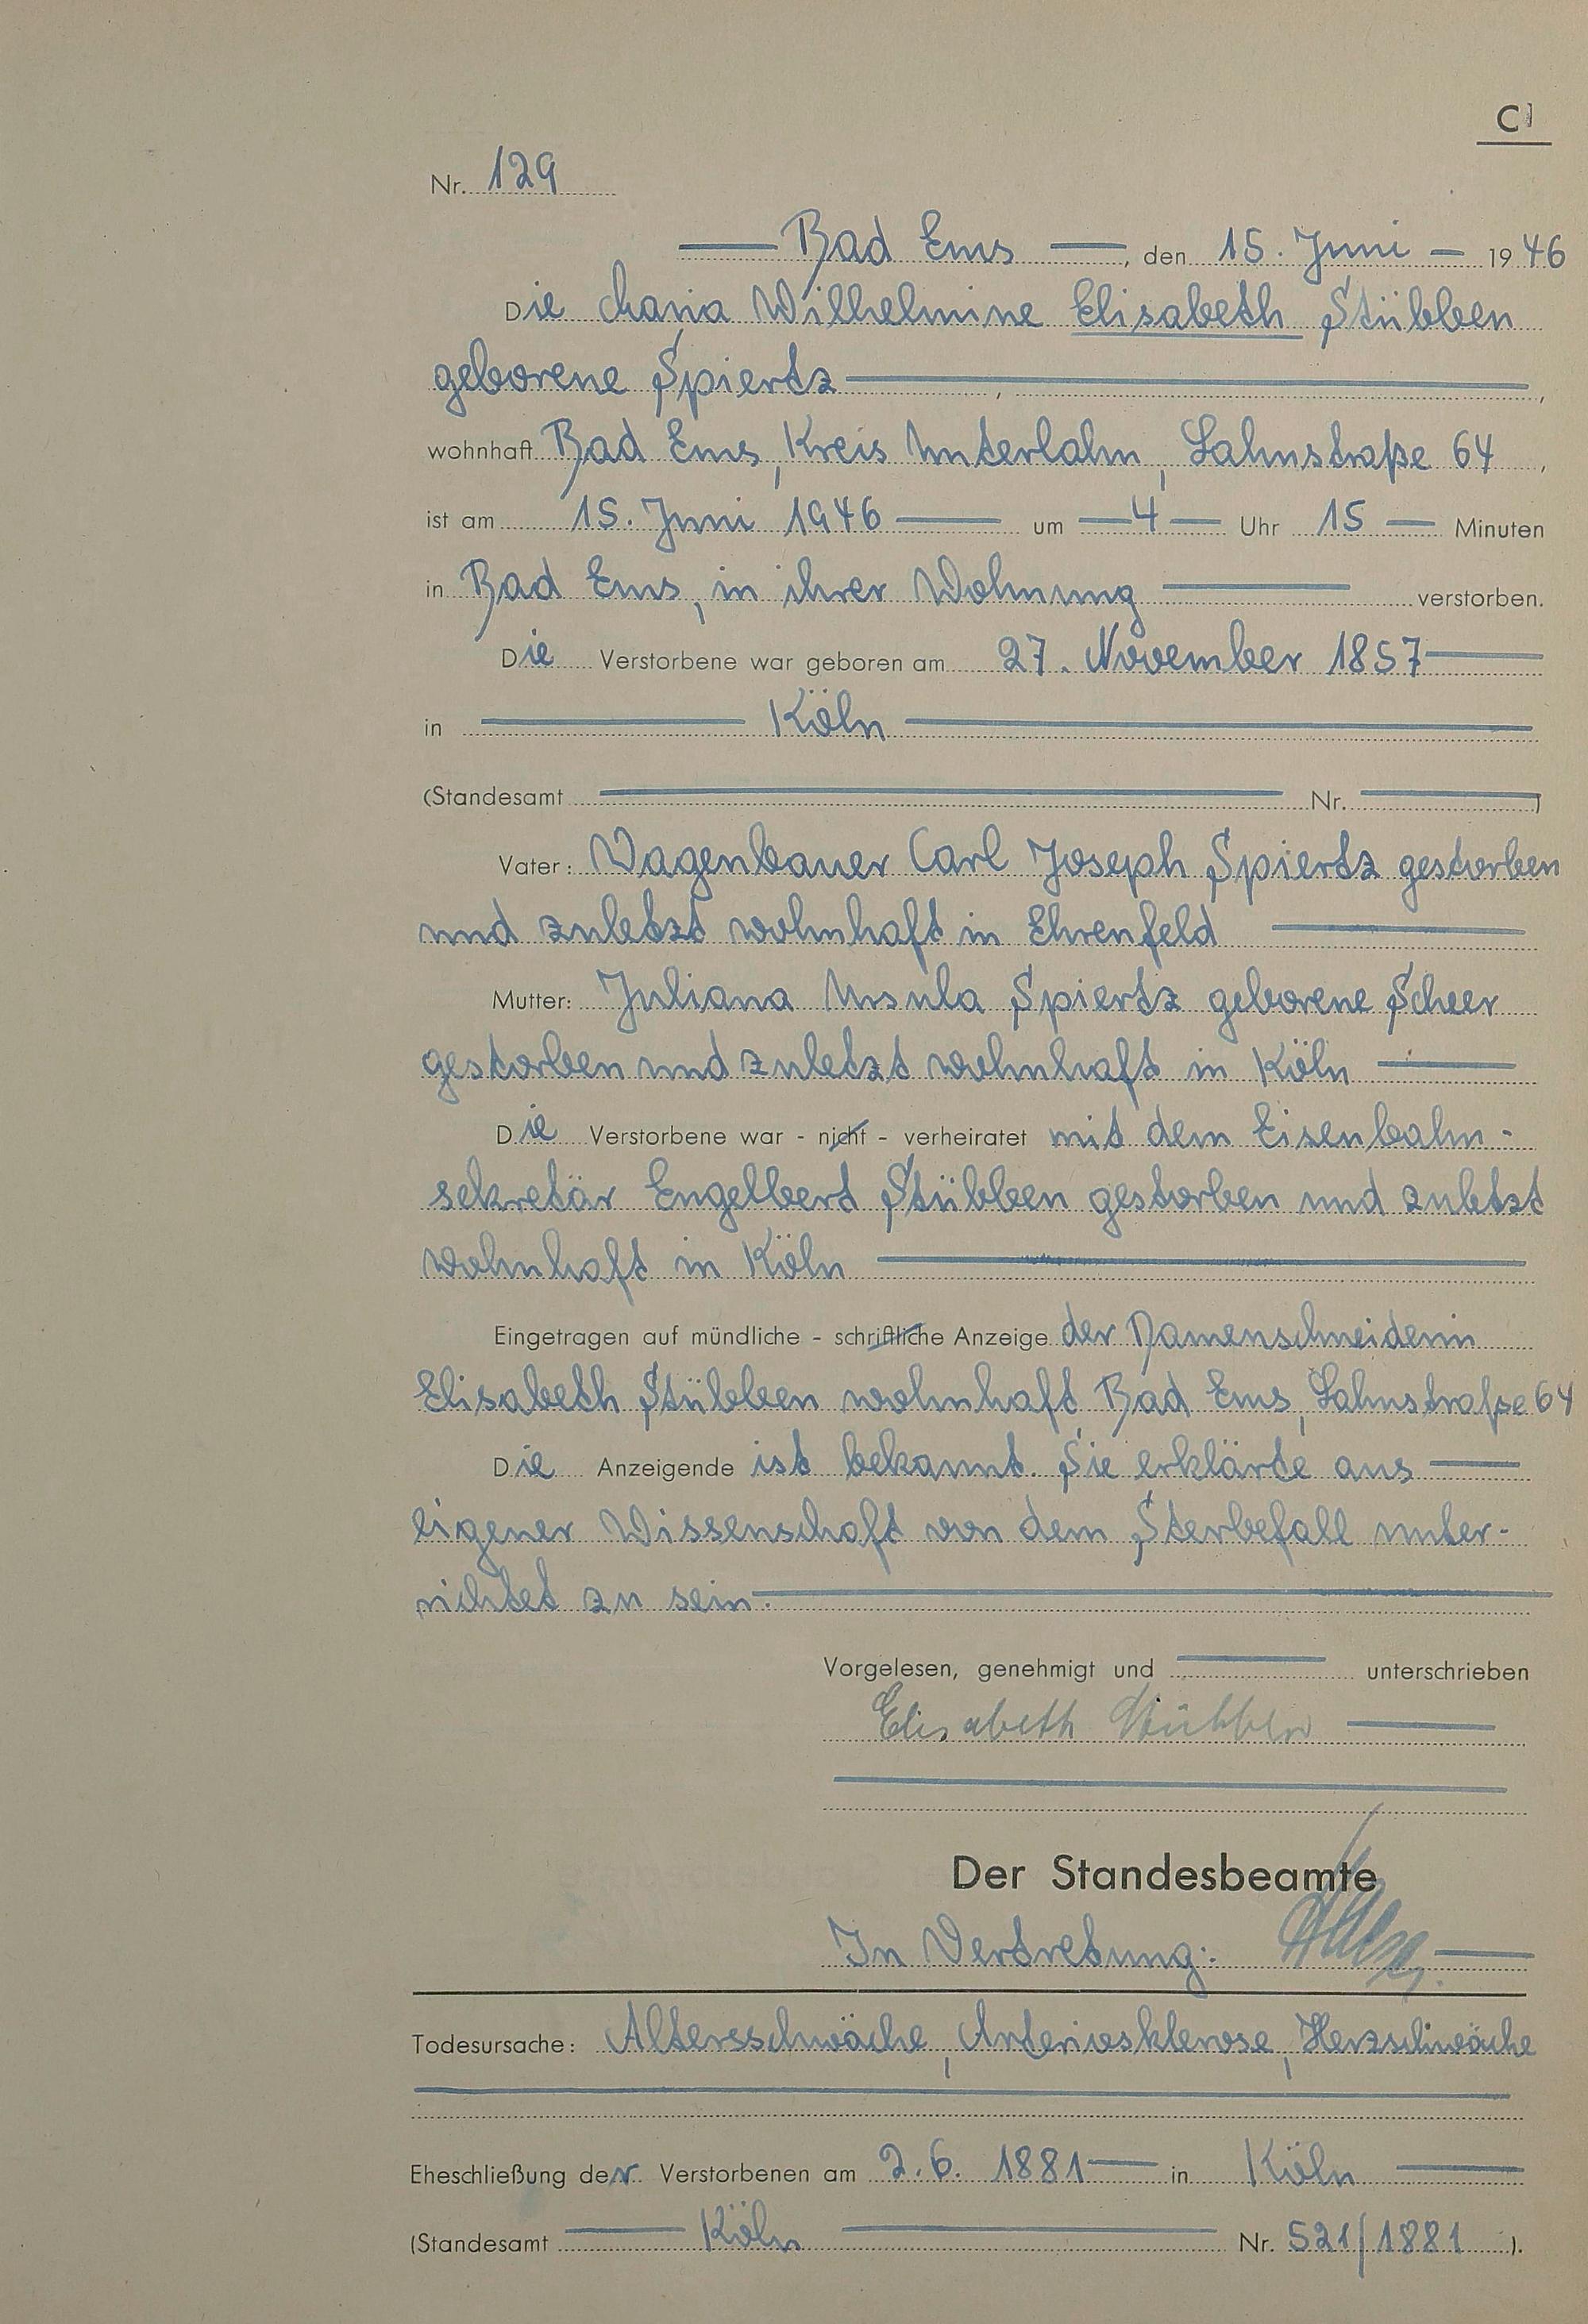 C
Nr. 129
Bad Ems, den 15. Juni 1946
Die Maria Wilhelmine Elisabeth Stübben
geborene Spiertz,
wohnhaft Bad Ems, Kreis Unterlahn, Lahnstraße 64,
ist am 15. Juni 1946 um 4 Uhr 15 Minuten
in Bad Ems, in ihrer Wohnung verstorben.
Die Verstorbene war geboren am 27. November 1857
in Köln
(Standesamt Nr. )
Vater: Wagenbauer Carl Joseph Spiertz gestorben
und zuletzt wohnhaft in Ehrenfeld
Mutter: Juliana Ursula Spiertz geborene Scheer
gestorben und zuletzt wohnhaft in Köln
Die Verstorbene war - nicht - verheiratet mit dem Eisenbahn-
sekretär Engelbert Stübben gestorben und zuletzt
wohnhaft in Köln
Eingetragen auf mündliche - schriftliche Anzeige der Damenschneiderin
Elisabeth Stübben wohnhaft Bad Ems, Lahnstraße 64
Die Anzeigende ist bekannt. Sie erklärte aus
eigener Wissenschaft von dem Sterbefall unter-
richtet zu sein.
Vorgelesen, genehmigt und unterschrieben
Elisabeth Stübben
Der Standesbeamte
In Vertretung:
Todesursache: Altersschwäche, Arteriosklerose, Herzschwäche
Eheschließung der Verstorbenen am 2.6. 1881 in Köln
(Standesamt Köln Nr. 521/1881 ).